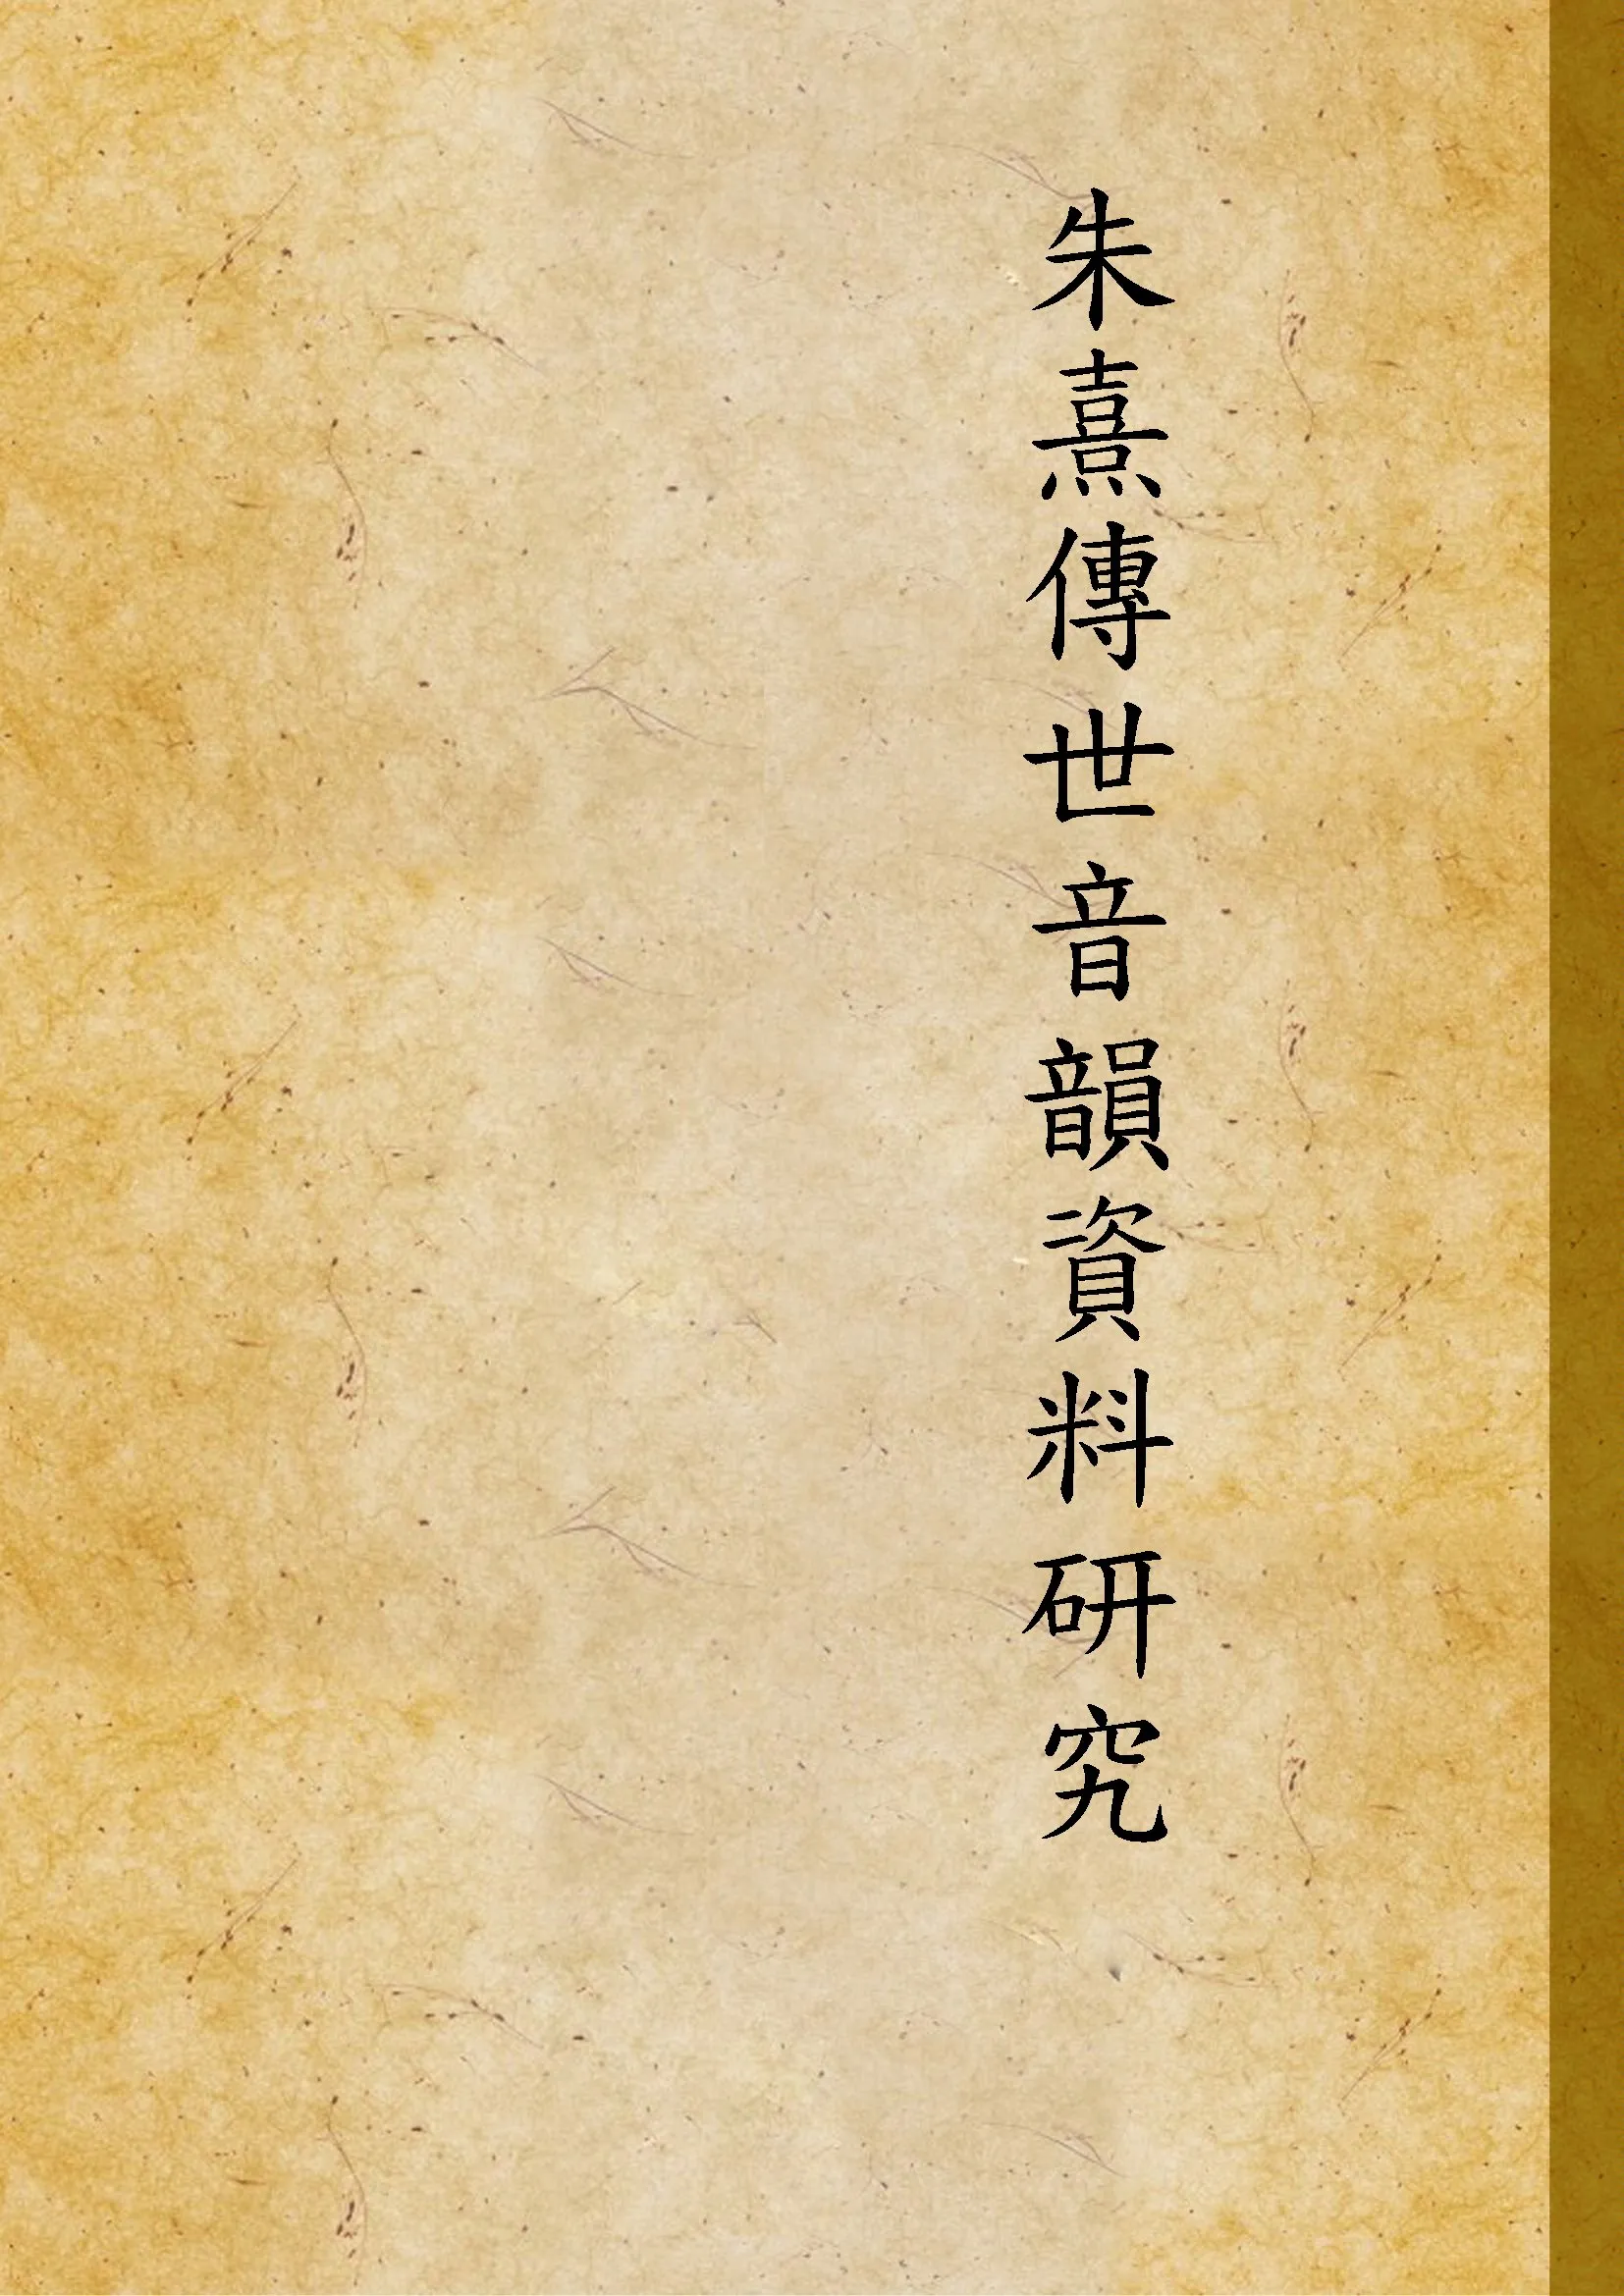 朱熹傳世音韻資料研究